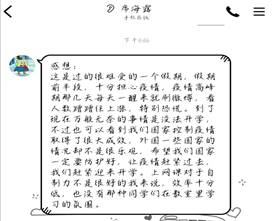 手机在线
下午6:06
感想:
这是过的很难受的一个假期,假期
前半段,十分担心疫情,疫情高峰
期那几天每天一醒来就刷微博,看
人数蹭蹭往上涨,特别恐慌。到了
现在万般无奈的事情是没法开学,
不过也可以看到我们国家控制疫情
取得了很大成效,外国一些国家的
情况却不是很乐观,希望我们国家
一定要防护好,让疫情赶紧过去,
我们赶紧返来开学。上网课对于自
制力不是很好的我来说,效率十分
低,也没有那种同学们在教室里学
习的氛围。